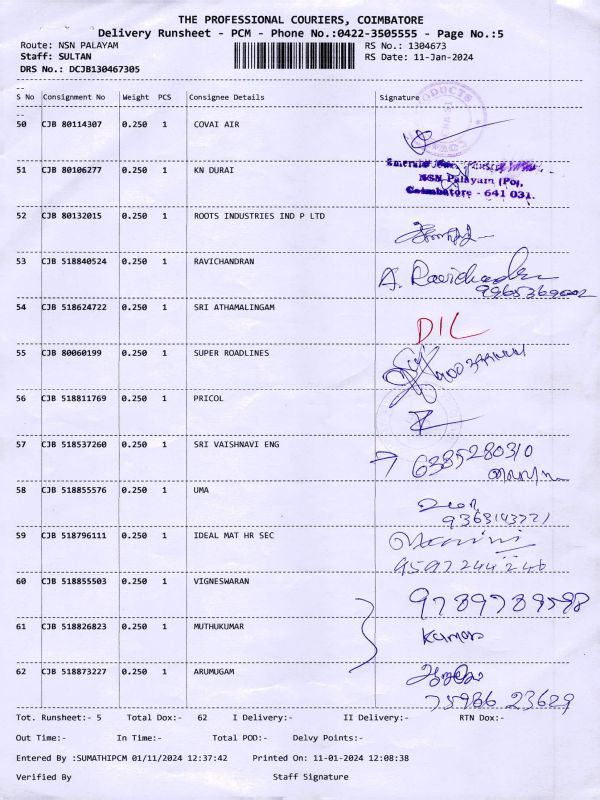 THE PROFESSIONAL COURIERS, COIMBATORE
Delivery Runsheet - PCM - Phone No.:0422-3505555 - Page No.:5
Route: NSN PALAYAM RS No.: 1304673
Staff: SULTAN RS Date: 11-Jan-2024
DRS No.: DCJB130467305
S No Consignment No Weight PCS Consignee Details Signature
PRODUCTS
50 CJB 80114307 0.250 1 COVAI AIR
51 CJB 80106277 0.250 1 KN DURAI
Emerald
NSN Palayam (Po),
Coimbatore - 641 031.
52 CJB 80132015 0.250 1 ROOTS INDUSTRIES IND P LTD
53 CJB 518840524 0.250 1 RAVICHANDRAN A. Ravichandran
54 CJB 518624722 0.250 1 SRI ATHAMALINGAM DIL
55 CJB 80060199 0.250 1 SUPER ROADLINES
56 CJB 518811769 0.250 1 PRICOL
57 CJB 518537260 0.250 1 SRI VAISHNAVI ENG 6385280310
58 CJB 518855576 0.250 1 UMA
9363143721
59 CJB 518796111 0.250 1 IDEAL MAT HR SEC
9597244246
60 CJB 518855503 0.250 1 VIGNESWARAN 9789789598
61 CJB 518826823 0.250 1 MUTHUKUMAR Kumar
62 CJB 518873227 0.250 1 ARUMUGAM
75986 23629
Tot. Runsheet:- 5 Total Dox:- 62 I Delivery:- II Delivery:- RTN Dox:-
Out Time:- In Time:- Total POD:- Delvy Points:-
Entered By :SUMATHIPCM 01/11/2024 12:37:42 Printed On: 11-01-2024 12:08:38
Verified By Staff Signature